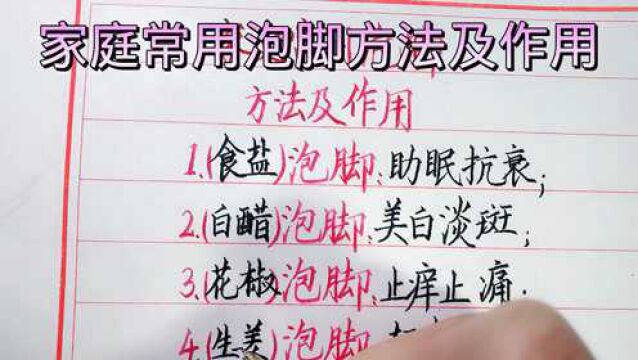 家庭常用泡脚方法及作用
方法及作用
1.(食盐)泡脚:助眠抗衰;
2.(白醋)泡脚:美白淡斑;
3.(花椒)泡脚:止痒止痛.
4.(生姜)泡脚: